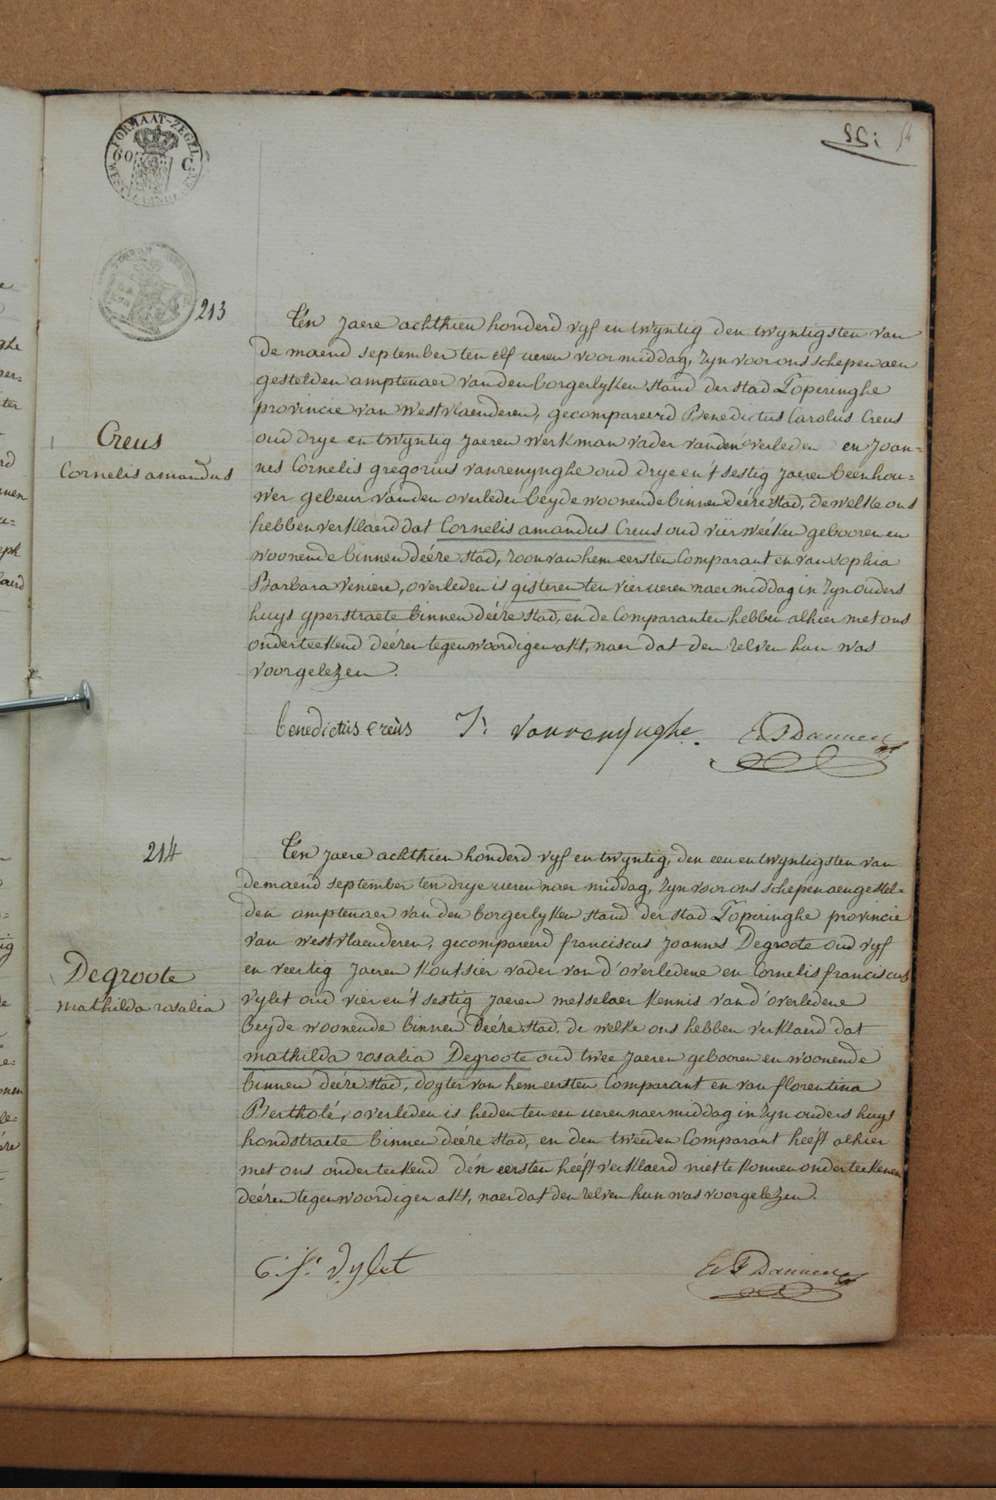 FORMAAT-ZEGEL
60 C
54
213
Ten Jaere achthien honderd vyf en twyntig den twyntigsten van
de maend september ten elf ueren voormiddag, zyn voor ons schepen aen
gestelden amptenaer van den borgerlyken stand der stad Poperinghe
provincie van Westvlaenderen, gecompareerd Benedictus Carolus Creus
oud drye en twyntig Jaeren werkman vader van den overleden en Joan=
nes Cornelis gregorius vanrenynghe oud drye en 't sestig Jaeren beenhou=
wer gebeur van den overleden beyde woonende binnen deéze stad, de welke ons
hebben verklaerd dat Cornelis amandus Creus oud vier weéken gebooren en
woonende binnen deéze stad, zoon van hem eersten Comparant en van sophia
Barbara Veniere, overleden is gisteren ten vier ueren naermiddag in zyn ouders
huys yperstraete binnen deéze stad, en de Comparanten hebben alhier met ons
onderteekend deézen tegenwoordigen akt, naer dat den zelven hun was
voorgelezen.
Creus
Cornelis amandus
benedictus creùs J: vanrenynghe
214
Ten Jaere achthien honderd vyf en twyntig, den een en twyntigsten van
de maend september ten drye ueren naer middag, zyn voor ons schepen aengestel=
den amptenaer van den borgerlyken stand der stad Poperinghe provincie
van westvlaenderen, gecompareerd franciscus Joannes Degroote oud vyf
en veertig Jaeren Koutsier vader van d'overledene en Cornelis franciscus
vylet oud vier en 't sestig Jaeren metselaer kennis van d'overledene
beyde woonende binnen deéze stad, de welke ons hebben verklaerd dat
mathilda rosalia Degroote oud twee Jaeren gebooren en woonende
binnen deéze stad, dogter van hem eersten Comparant en van florentina
Bertholé, overleden is heden ten een ueren naermiddag in zyn ouders huys
hondstraete binnen deéze stad, en den tweeden Comparant heéft alhier
met ons onderteekend dén eersten heéft verklaerd niet te konnen onderteekenen
deézen tegenwoordigen akt, naer dat den zelven hun was voorgelezen.
Degroote
mathilda rosalia
C: f: vylet